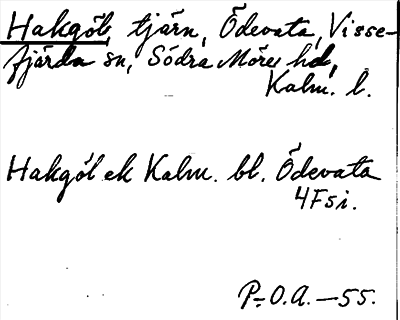 Hakgöl, tjärn, Ödevata, Visse-
fjärda sn, Södra Möre hd,
Kalm. l.
Hakgöl ek Kalm. bl. Ödevata
4F5i.
P-O.A. -55.